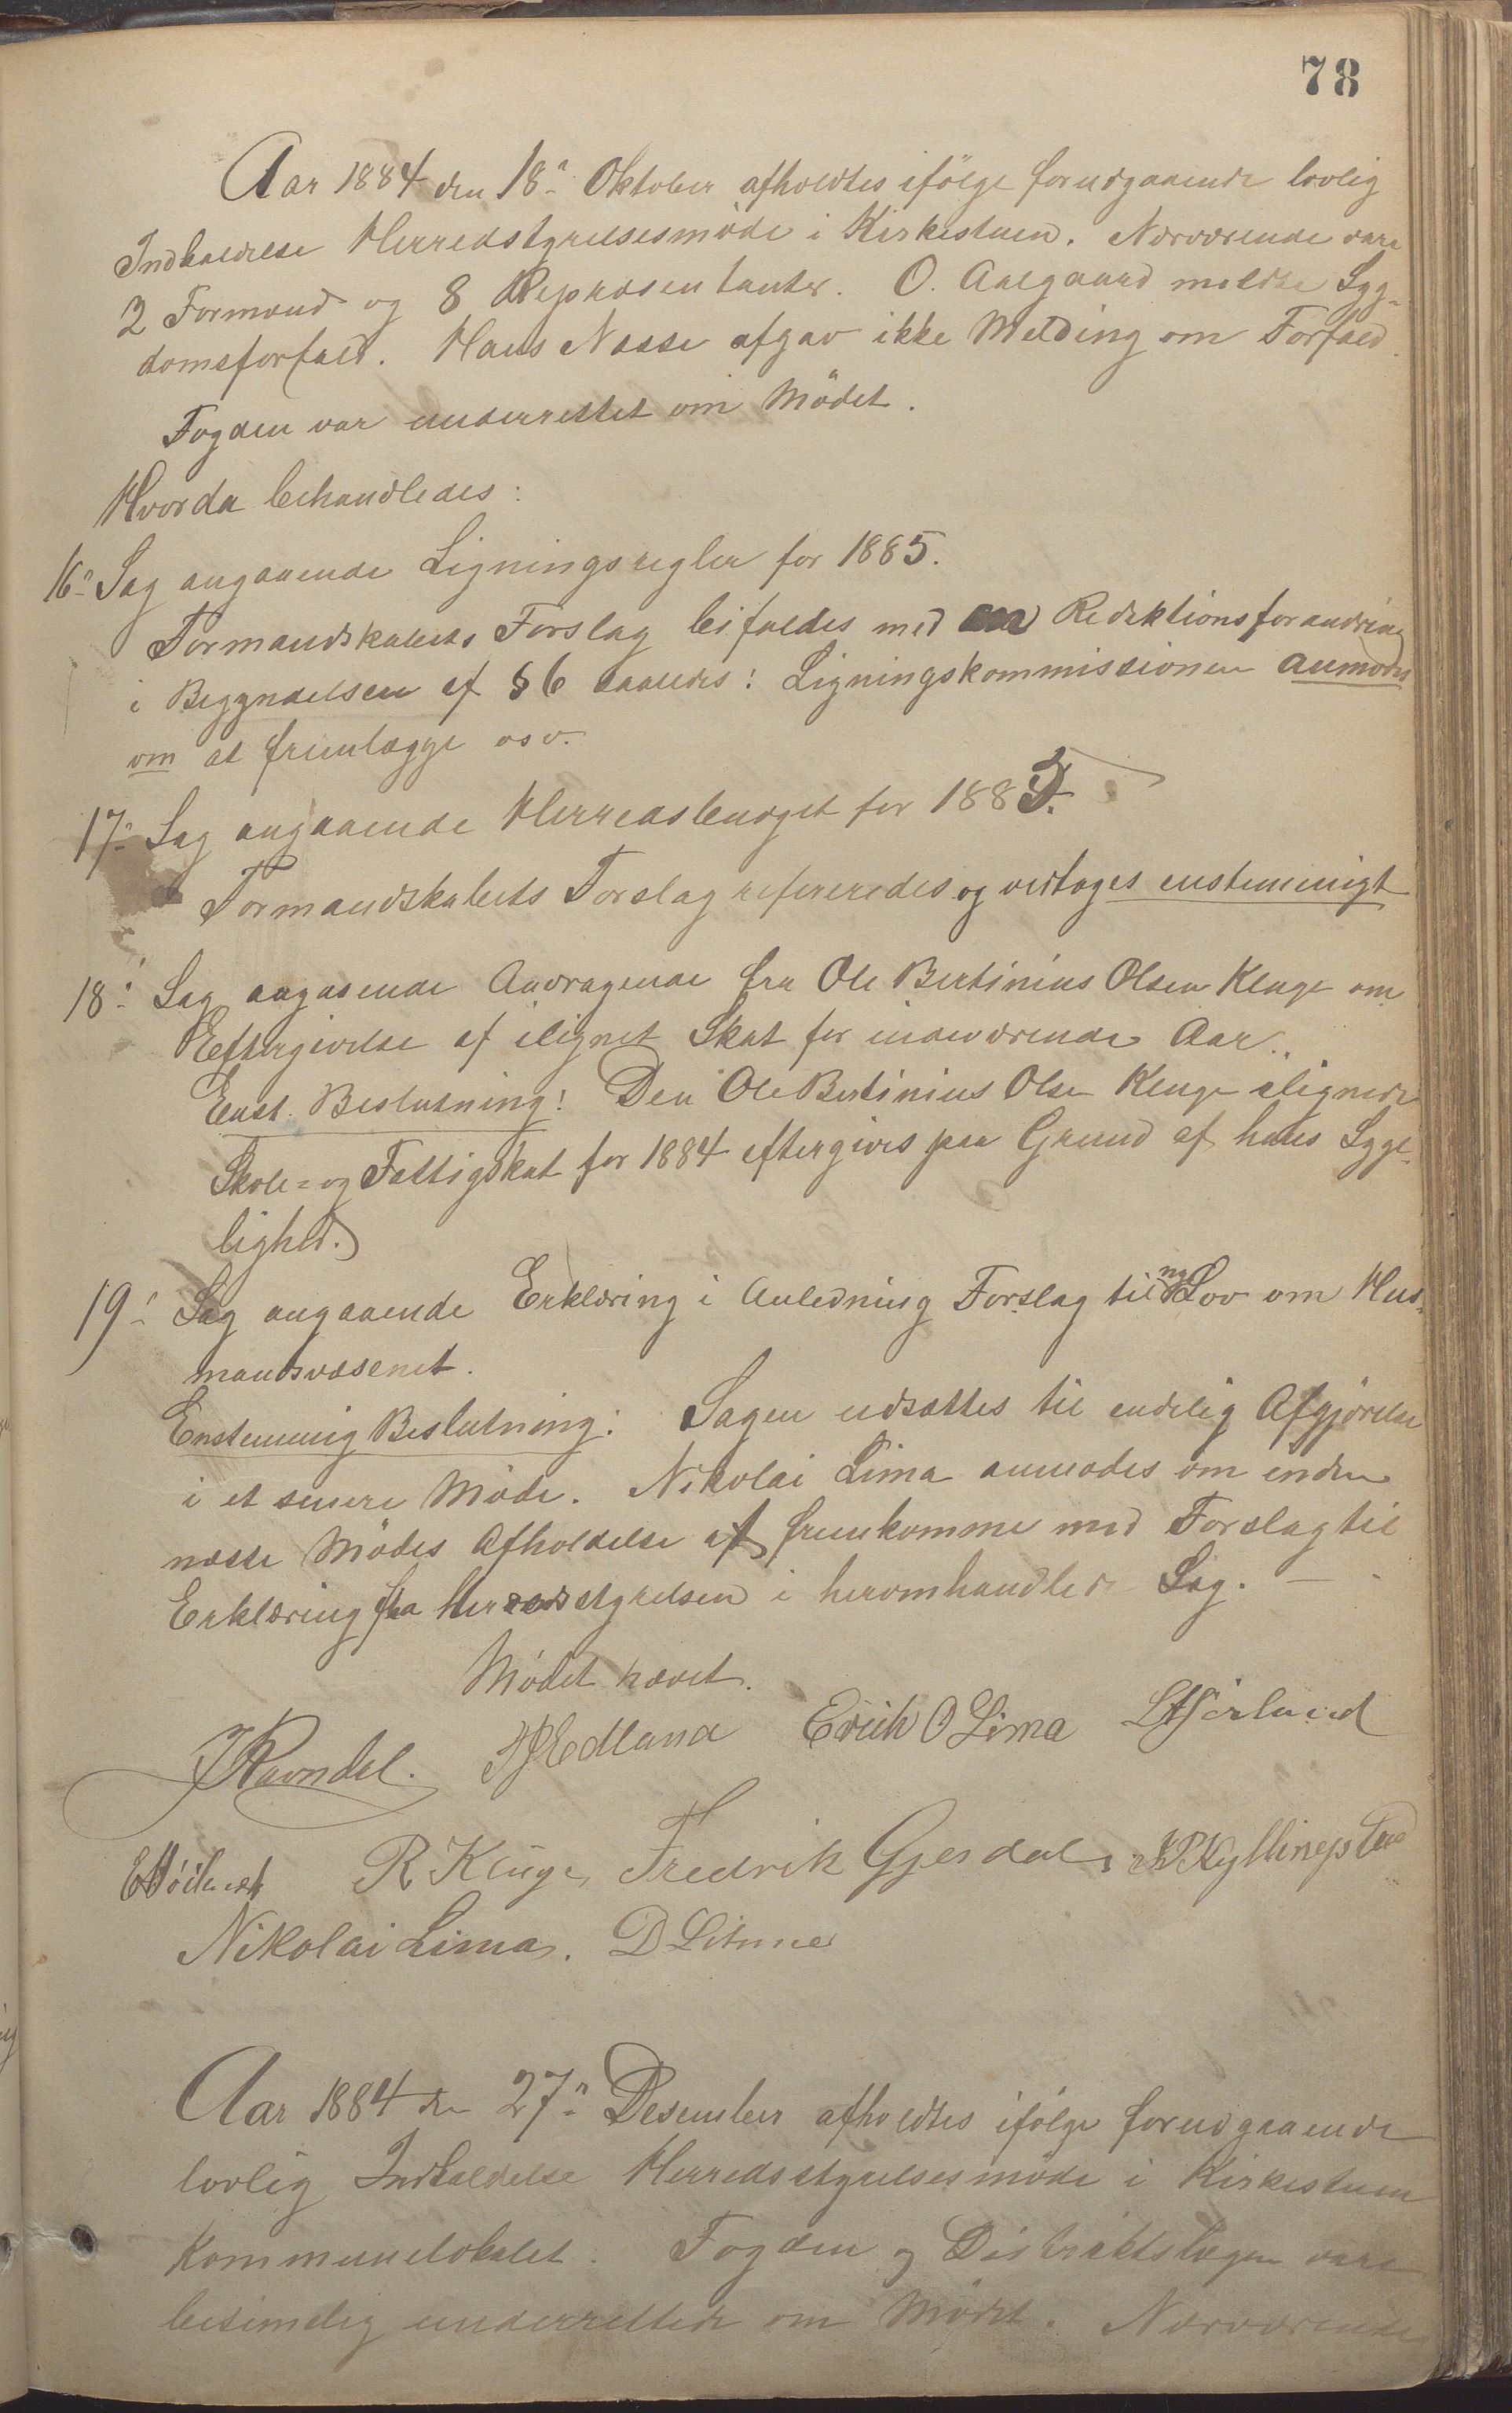 78
Aar 1884 den 18de Oktober afholdtes ifölge forudgaaende lovlig
Indkaldelse Herredstyrelsesmöde i Kirkestuen. Nærværende vare
2 Formænd og 8 Repræsentanter. O. Aalgaard meldte Syg-
domsforfald. Hans Næsse afgav ikke Melding om Forfald.
Fogden var underrettet om Mödet.
Hvorda behandledes:
16de Sag angaaende Ligningsregler for 1885.
Formandskabets Forslag bifaldes med en Redaktionsforandring
i Begyndelsen af § 6 saaledes: Ligningskommissionen anmodes
om at fremlægge osv.
17de Sag angaaende Herredsbudget for 1885.
Formandskabets Forslag refereredes og vedtoges enstemmigt
18de Sag angaaende Andragende fra Ole Bertinius Olsen Kluge om
Eftergivelse af ilignet Skat for indeværende Aar.
Enst. Beslutning: Den Ole Bertinius Olsen Kluge ilignede
Skole- og Fattigskat for 1884 eftergives paa Grund af hans Syge-
lighed.
19de Sag angaaende Erklæring i Anledning Forslag til ny Lov om Hus-
mandsvæsenet.
Enstemmig Beslutning: Sagen udsættes til endelig Afgjörelse
i et senere Möde. Nikolai Lima anmodes om inden
næste Mödes Afholdelse at fremkomme med Forslag til
Erklæring fra Herredsstyrelsen i heromhandlede Sag. —
Mödet hævet.
J Ravndal. Edland Erik O Lima
R Kluge, Fredrik Gjesdal, Kyllingstad
Nikolai Lima. D Limme
Aar 1884 den 27de Desember afholdtes ifölge forudgaaende
lovlig Indkaldelse Herredsstyrelsesmöde i Kirkestuen
Kommunelokalet. Fogden og Distriktslægen vare
betimelig underrettede om Mödet. Nærværende